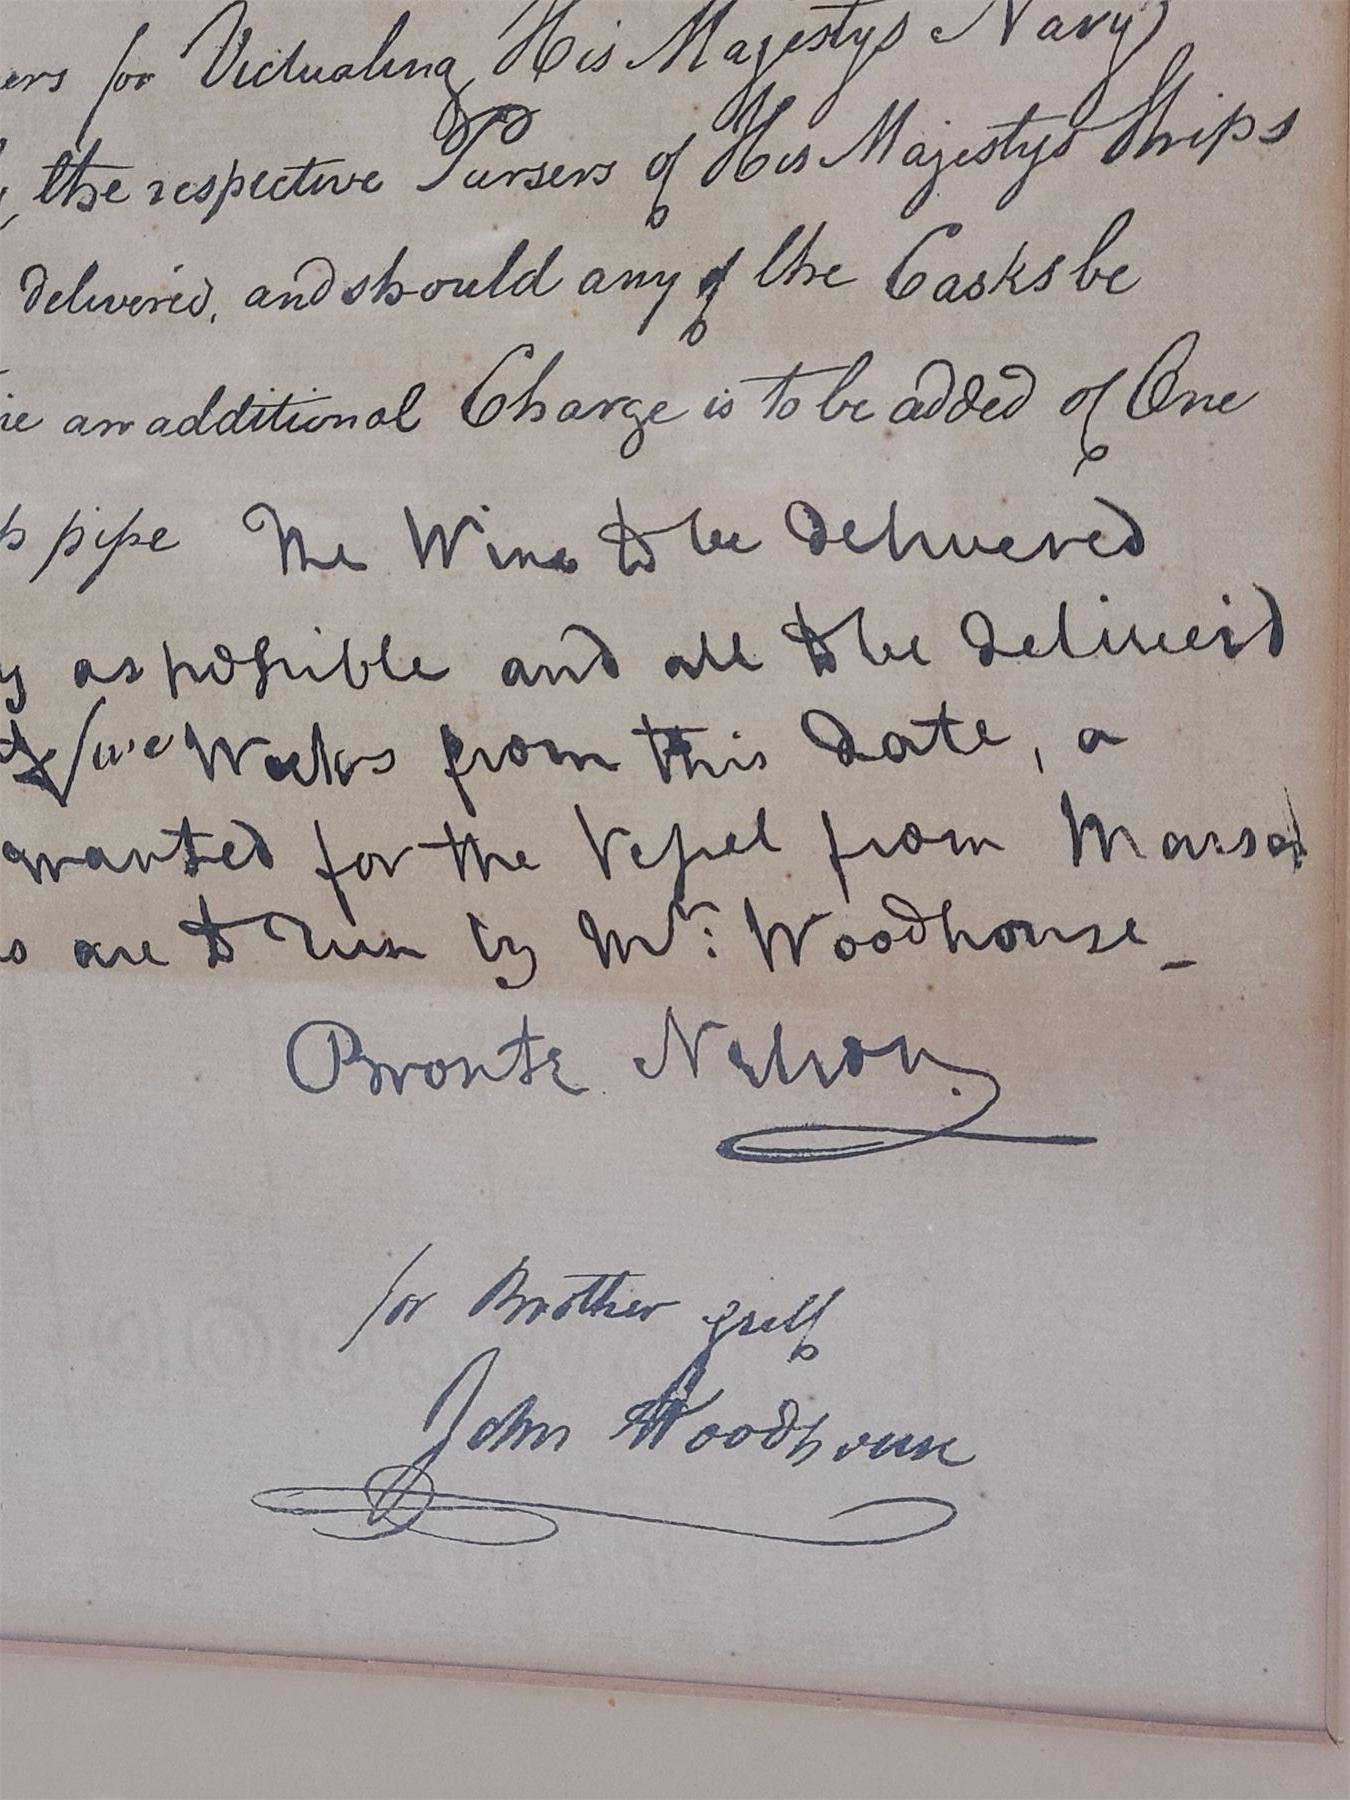 ers for Victualing His Majestys Navy
the respective Pursers of His Majestys Ships
delivered, and should any of the Casks be
an additional Charge is to be added of One
pipe The Wine to be delivered
as possible and all to be deliverd
five Weeks from this date, a
granted for the Vessel from Marsal
are to run by Mr: Woodhouse_
Bronte Nelson
for Brother & self
John Woodhouse